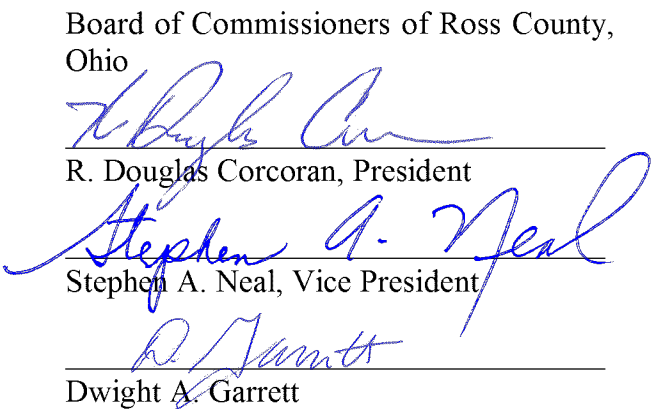 Board of Commissioners of Ross County,
Ohio
R Douglas Cor
R. Douglas Corcoran, President
Stephen A. Neal
Stephen A. Neal, Vice President
D. Garrett
Dwight A. Garrett